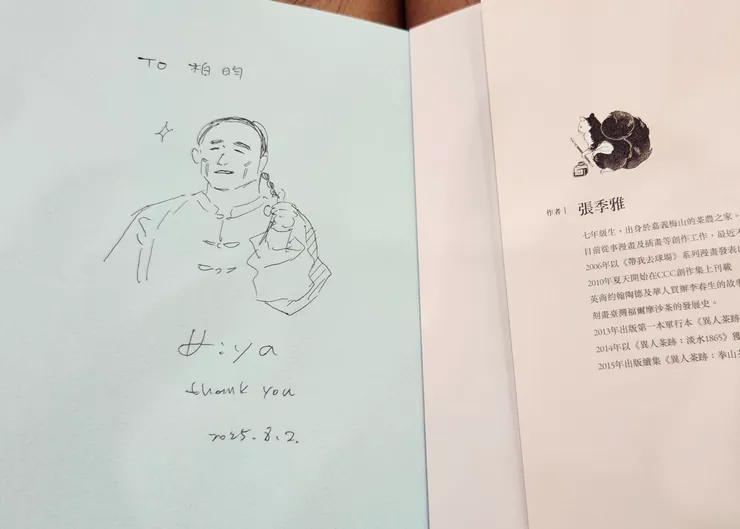 To 柏昀
thank you
2025.8.2.
作者｜ 張季雅
七年級生，出身於嘉義梅山的茶農之家。
目前從事漫畫及插畫等創作工作，最近不
2006年以《帶我去球場》系列漫畫發表出
2010年夏天開始在CCC創作集上刊載
英商約翰陶德及華人買辦李春生的故事
刻畫臺灣福爾摩沙茶的發展史。
2013年出版第一本單行本《異人茶跡
2014年以《異人茶跡：淡水1865》獲
2015年出版續集《異人茶跡：拳山